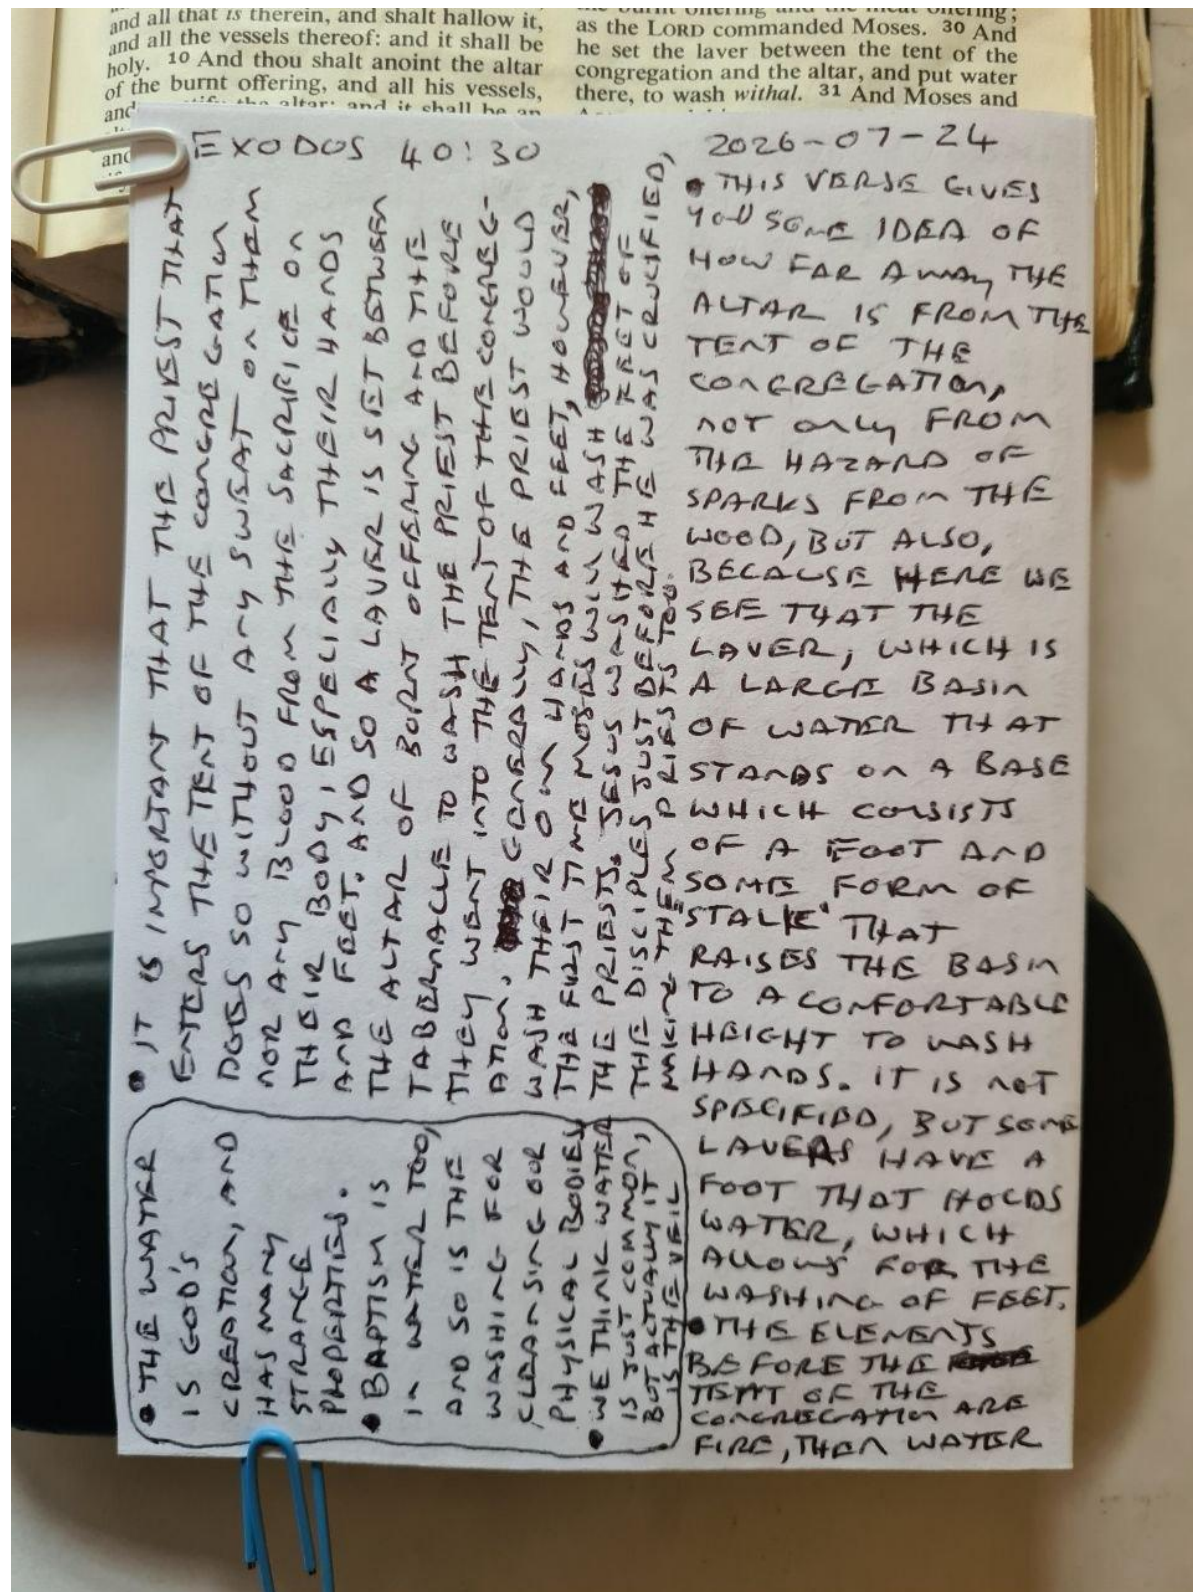 and all that is therein, and shalt hallow it,
and all the vessels thereof: and it shall be
holy. 10 And thou shalt anoint the altar
of the burnt offering, and all his vessels,
and the altar: and it shall be an
and
the burnt offering and the meat offering;
as the LORD commanded Moses. 30 And
he set the laver between the tent of the
congregation and the altar, and put water
there, to wash withal. 31 And Moses and
EXODOS 40:30
2026-07-24
• THIS VERSE GIVES
YOU SOME IDEA OF
HOW FAR AWAY THE
ALTAR IS FROM THE
TENT OF THE
CONGREGATION,
NOT ONLY FROM
THE HAZARD OF
SPARKS FROM THE
WOOD, BUT ALSO,
BECAUSE HERE WE
SEE THAT THE
LAVER, WHICH IS
A LARGE BASIN
OF WATER THAT
STANDS ON A BASE
WHICH CONSISTS
OF A FOOT AND
SOME FORM OF
"STALK" THAT
RAISES THE BASIN
TO A COMFORTABLE
HEIGHT TO WASH
HANDS. IT IS NOT
SPECIFIED, BUT SOME
LAVERS HAVE A
FOOT THAT HOLDS
WATER, WHICH
ALLOWS FOR THE
WASHING OF FEET.
• THE ELEMENTS
BEFORE THE
TENT OF THE
CONGREGATION ARE
FIRE, THEN WATER
• IT IS IMPORTANT THAT THE PRIEST THAT
ENTERS THE TENT OF THE CONGREGATION
DOES SO WITHOUT ANY SWEAT ON THEM
NOR ANY BLOOD FROM THE SACRIFICE ON
THEIR BODY, ESPECIALLY THEIR HANDS
AND FEET. AND SO A LAVER IS SET BETWEEN
THE ALTAR OF BORNT OFFERING AND THE
TABERNACLE TO WASH THE PRIEST BEFORE
THEY WENT INTO THE TENT OF THE CONGREG-
ATION. GENERALLY, THE PRIEST WOULD
WASH THEIR OWN HANDS AND FEET, HOWEVER,
THE FIRST TIME MOSES WILL WASH
THE PRIESTS. JESUS WASHED THE FEET OF
THE DISCIPLES JUST BEFORE HE WAS CRUCIFIED,
MAKING THEM PRIESTS TOO.
• THE WATER
IS GOD'S
CREATION, AND
HAS MANY
STRANGE
PROPERTIES.
• BAPTISM IS
IN WATER TOO,
AND SO IS THE
WASHING FOR
CLEANSING OOR
PHYSICAL BODIES
• WE THINK WATER
IS JUST COMMON,
BOT ACTUALLY IT
IS THE VEIL